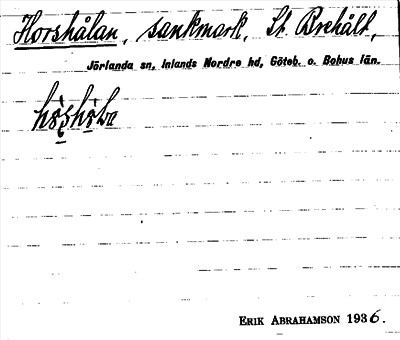 Horshålan, sankmark, St. Brehält,
Jörlanda sn, Inlands Nordre hd, Göteb. o. Bohus län.
ERIK ABRAHAMSON 1936.